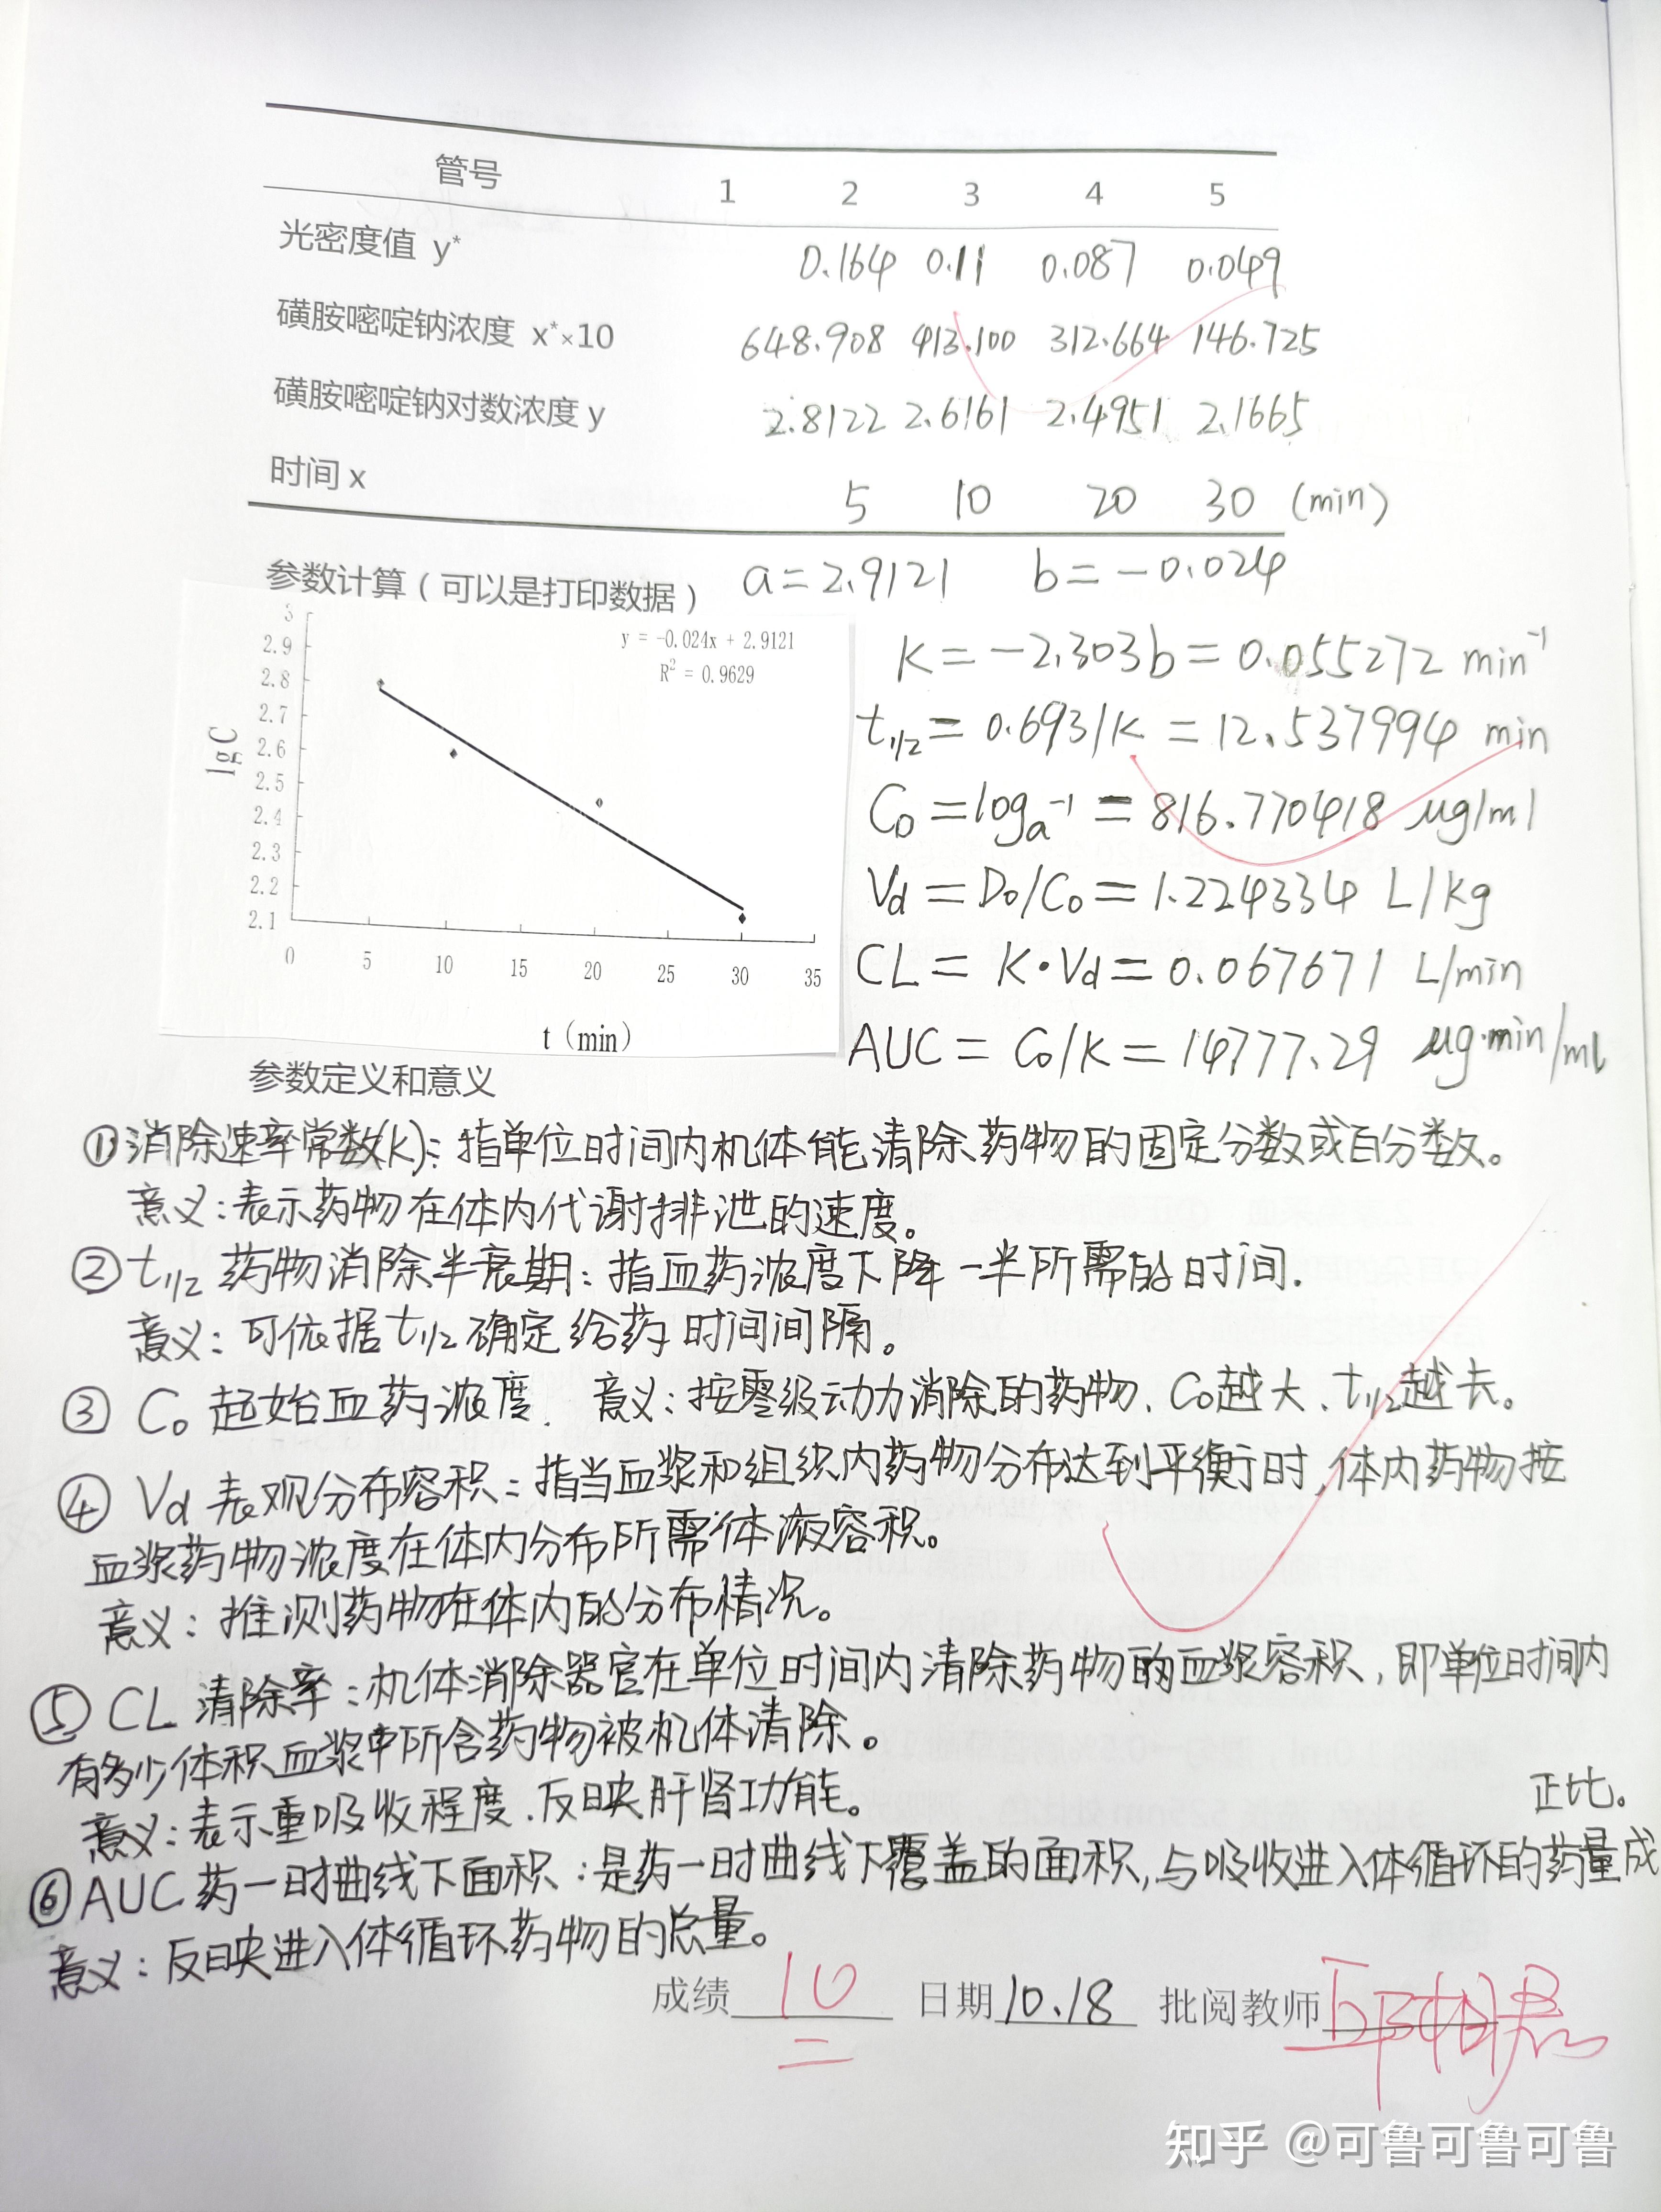 管号 1 2 3 4 5
光密度值 y* 0.164 0.11 0.087 0.049
磺胺嘧啶钠浓度 x*×10 648.908 413.100 312.664 146.725
磺胺嘧啶钠对数浓度 y 2.8122 2.6161 2.4951 2.1665
时间 x 5 10 20 30 (min)
参数计算（可以是打印数据） a=2.9121 b=-0.024
3
2.9
2.8
2.7
2.6
2.5
2.4
2.3
2.2
2.1
lgC
y = -0.024x + 2.9121
R² = 0.9629
0 5 10 15 20 25 30 35
t (min)
K=-2.303b=0.055272 min⁻¹
t1/2=0.693/K=12.537994 min
C0=loga⁻¹=816.770418 μg/ml
Vd=D0/C0=1.224334 L/kg
CL=K·Vd=0.067671 L/min
AUC=C0/K=14777.29 μg·min/ml
参数定义和意义
①消除速率常数(K)：指单位时间内机体能清除药物的固定分数或百分数。
意义：表示药物在体内代谢排泄的速度。
②t1/2 药物消除半衰期：指血药浓度下降一半所需的时间.
意义：可依据t1/2确定给药时间间隔。
③ C0 起始血药浓度. 意义：按零级动力消除的药物、C0越大、t1/2越长。
④ Vd 表观分布容积：指当血浆和组织内药物分布达到平衡时,体内药物按
血浆药物浓度在体内分布所需体液容积。
意义：推测药物在体内的分布情况。
⑤ CL 清除率：机体消除器官在单位时间内清除药物的血浆容积，即单位时间内
有多少体积血浆中所含药物被机体清除。
意义：表示重吸收程度.反映肝肾功能。
⑥AUC 药一时曲线下面积：是药一时曲线下覆盖的面积,与吸收进入体循环的药量成
正比。
意义：反映进入体循环药物的总量。
成绩 10 日期 10.18 批阅教师
知乎 @可鲁可鲁可鲁